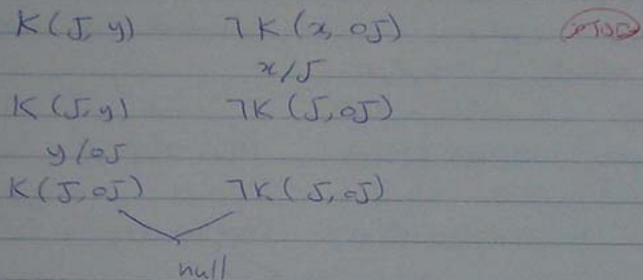 K(J, y) ¬K(x, OJ)
x/J
K(J, y) ¬K(J, OJ)
y/OJ
K(J, OJ) ¬K(J, OJ)
null